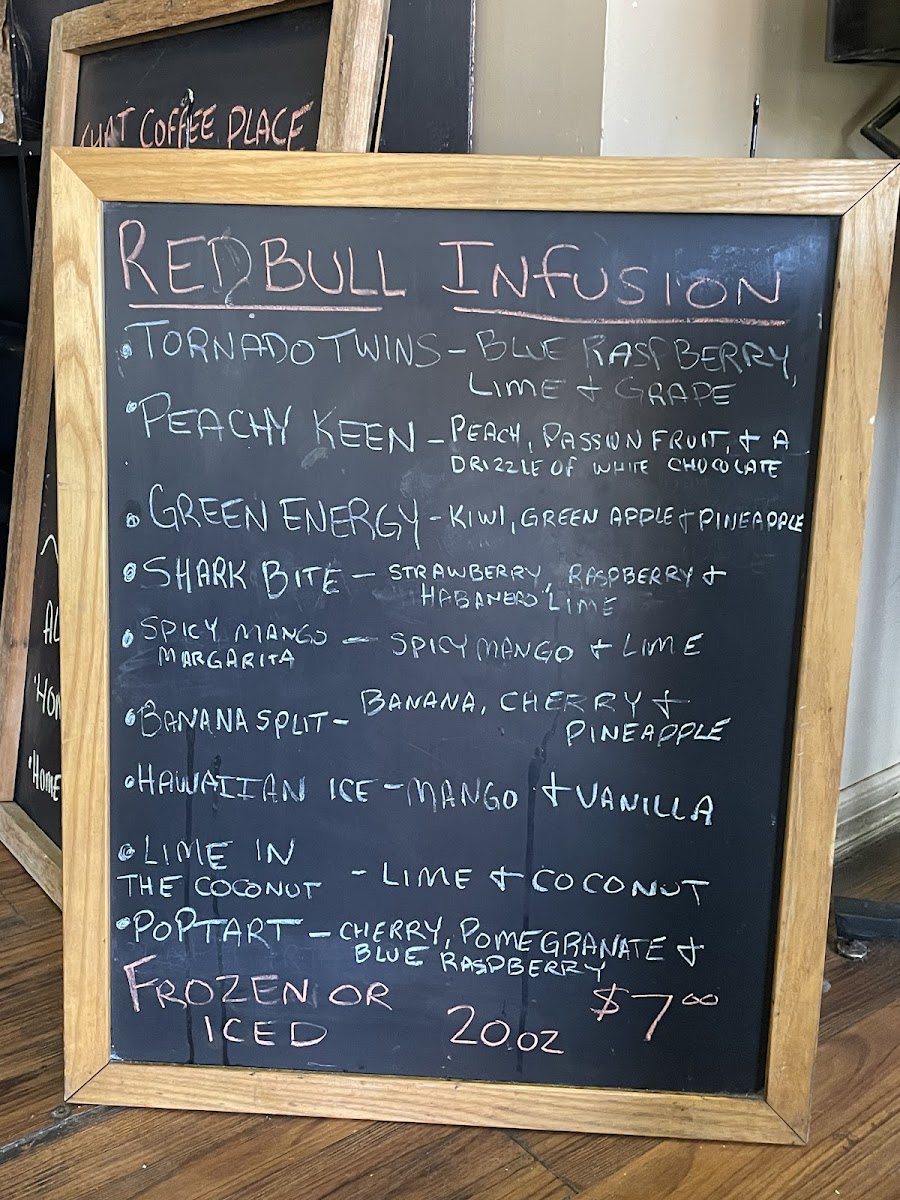 THAT COFFEE PLACE
REDBULL INFUSION
• TORNADO TWINS - BLUE RASPBERRY,
LIME + GRAPE
• PEACHY KEEN - PEACH, PASSION FRUIT, + A
DRIZZLE OF WHITE CHOCOLATE
• GREEN ENERGY - KIWI, GREEN APPLE + PINEAPPLE
• SHARK BITE - STRAWBERRY, RASPBERRY +
HABANERO LIME
• SPICY MANGO
MARGARITA - SPICY MANGO + LIME
• BANANA SPLIT - BANANA, CHERRY +
PINEAPPLE
• HAWAIIAN ICE - MANGO + VANILLA
• LIME IN
THE COCONUT - LIME + COCONUT
• POPTART - CHERRY, POMEGRANATE +
BLUE RASPBERRY
FROZEN OR
ICED 20 oz $7.00
AL
• HOM
• Home